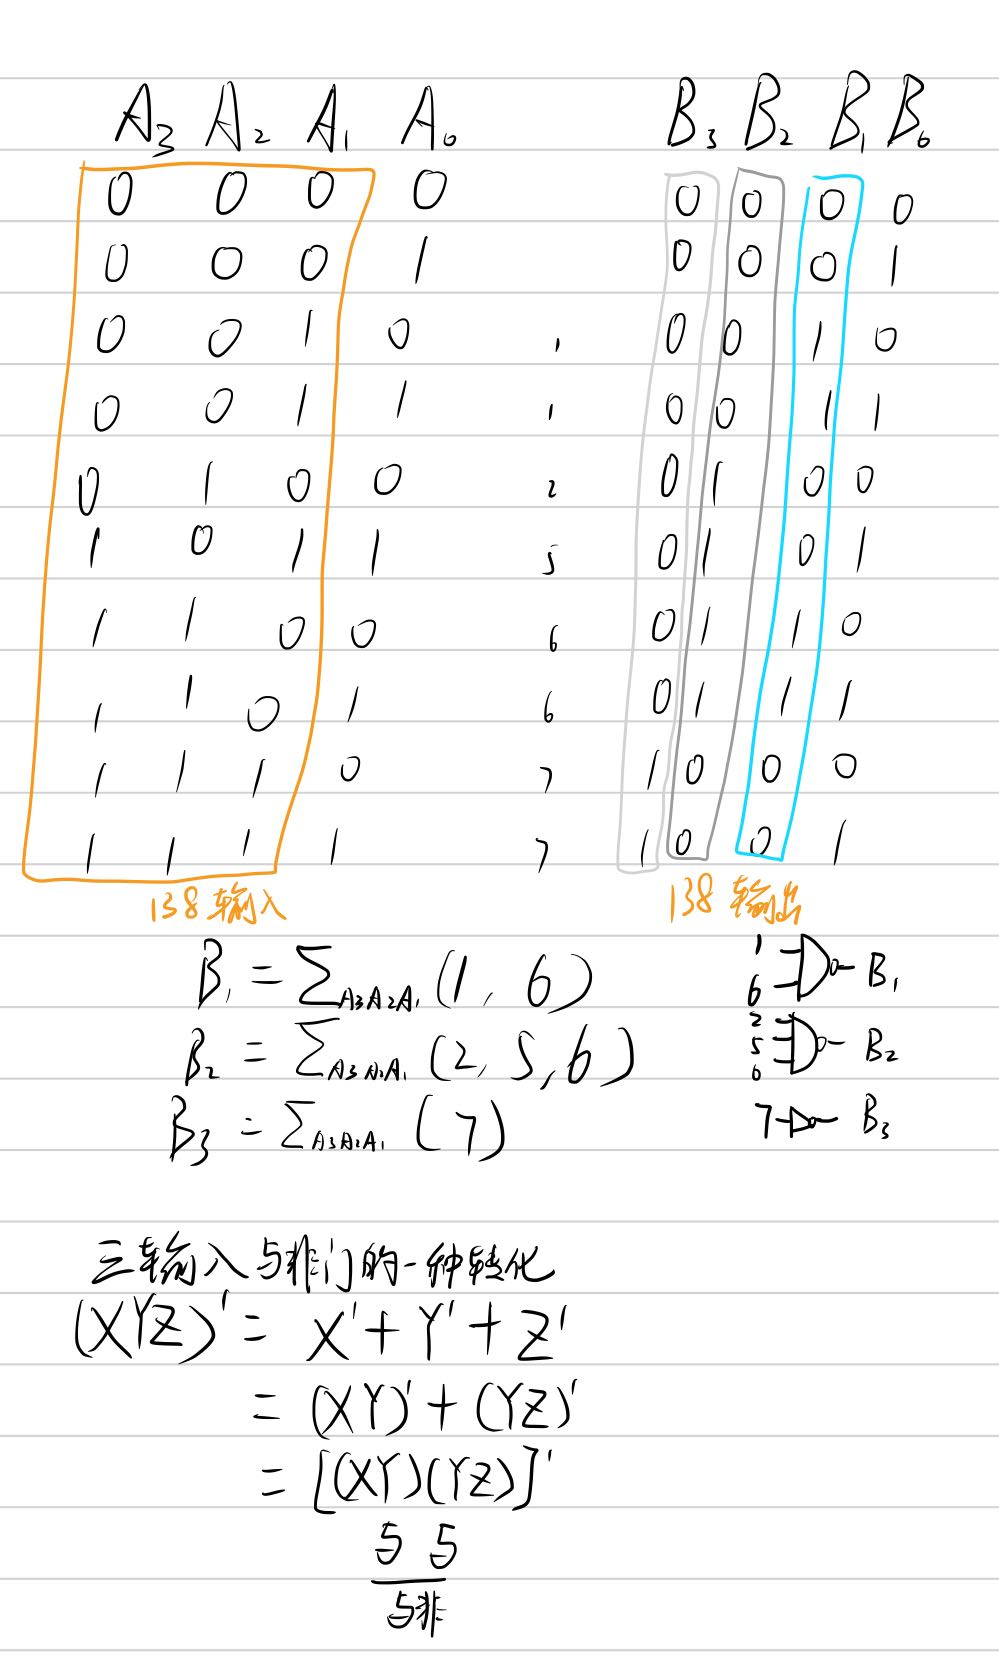 A₃ A₂ A₁ A₀ B₃ B₂ B₁ B₀
0 0 0 0 0 0 0 0
0 0 0 1 0 0 0 1
0 0 1 0 1 0 0 1 0
0 0 1 1 1 0 0 1 1
0 1 0 0 2 0 1 0 0
1 0 1 1 5 0 1 0 1
1 1 0 0 6 0 1 1 0
1 1 0 1 6 0 1 1 1
1 1 1 0 7 1 0 0 0
1 1 1 1 7 1 0 0 1
138 输入 138 输出
B₁ = ∑A3A2A1 (1, 6)
B₂ = ∑A3A2A1 (2, 5, 6)
B₃ = ∑A3A2A1 (7)
1
6
B₁
2
5
6
B₂
7
B₃
三输入与非门的一种转化
(XYZ)' = X' + Y' + Z'
= (XY)' + (YZ)'
= [(XY)(YZ)]'
与 与
与非